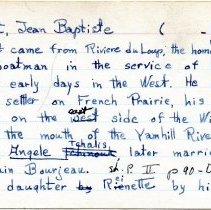 , Jean Baptiste (
came from Riviere du Loup, the hom
boatman in the service of
early days in the West. He
settler on French Prairie, his
on the west east side of the Wi
the mouth of the Yamhill Rive
Angele Tchalis, later marrie
uin Bourjeau. P. II p 90-
daughter by Rienette by hi